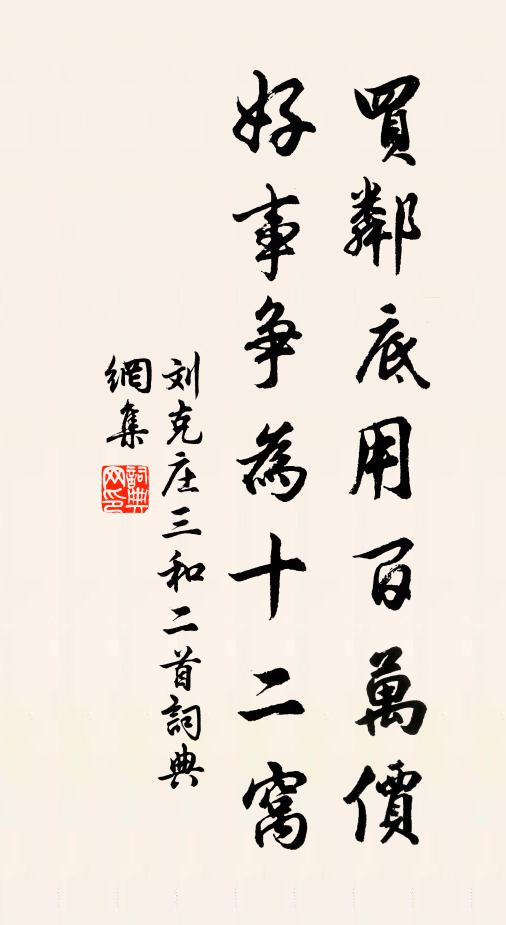 買鄰底用百萬價
好事争為十二窩
刘克庄三和二首詞典
網集
詞典
网印